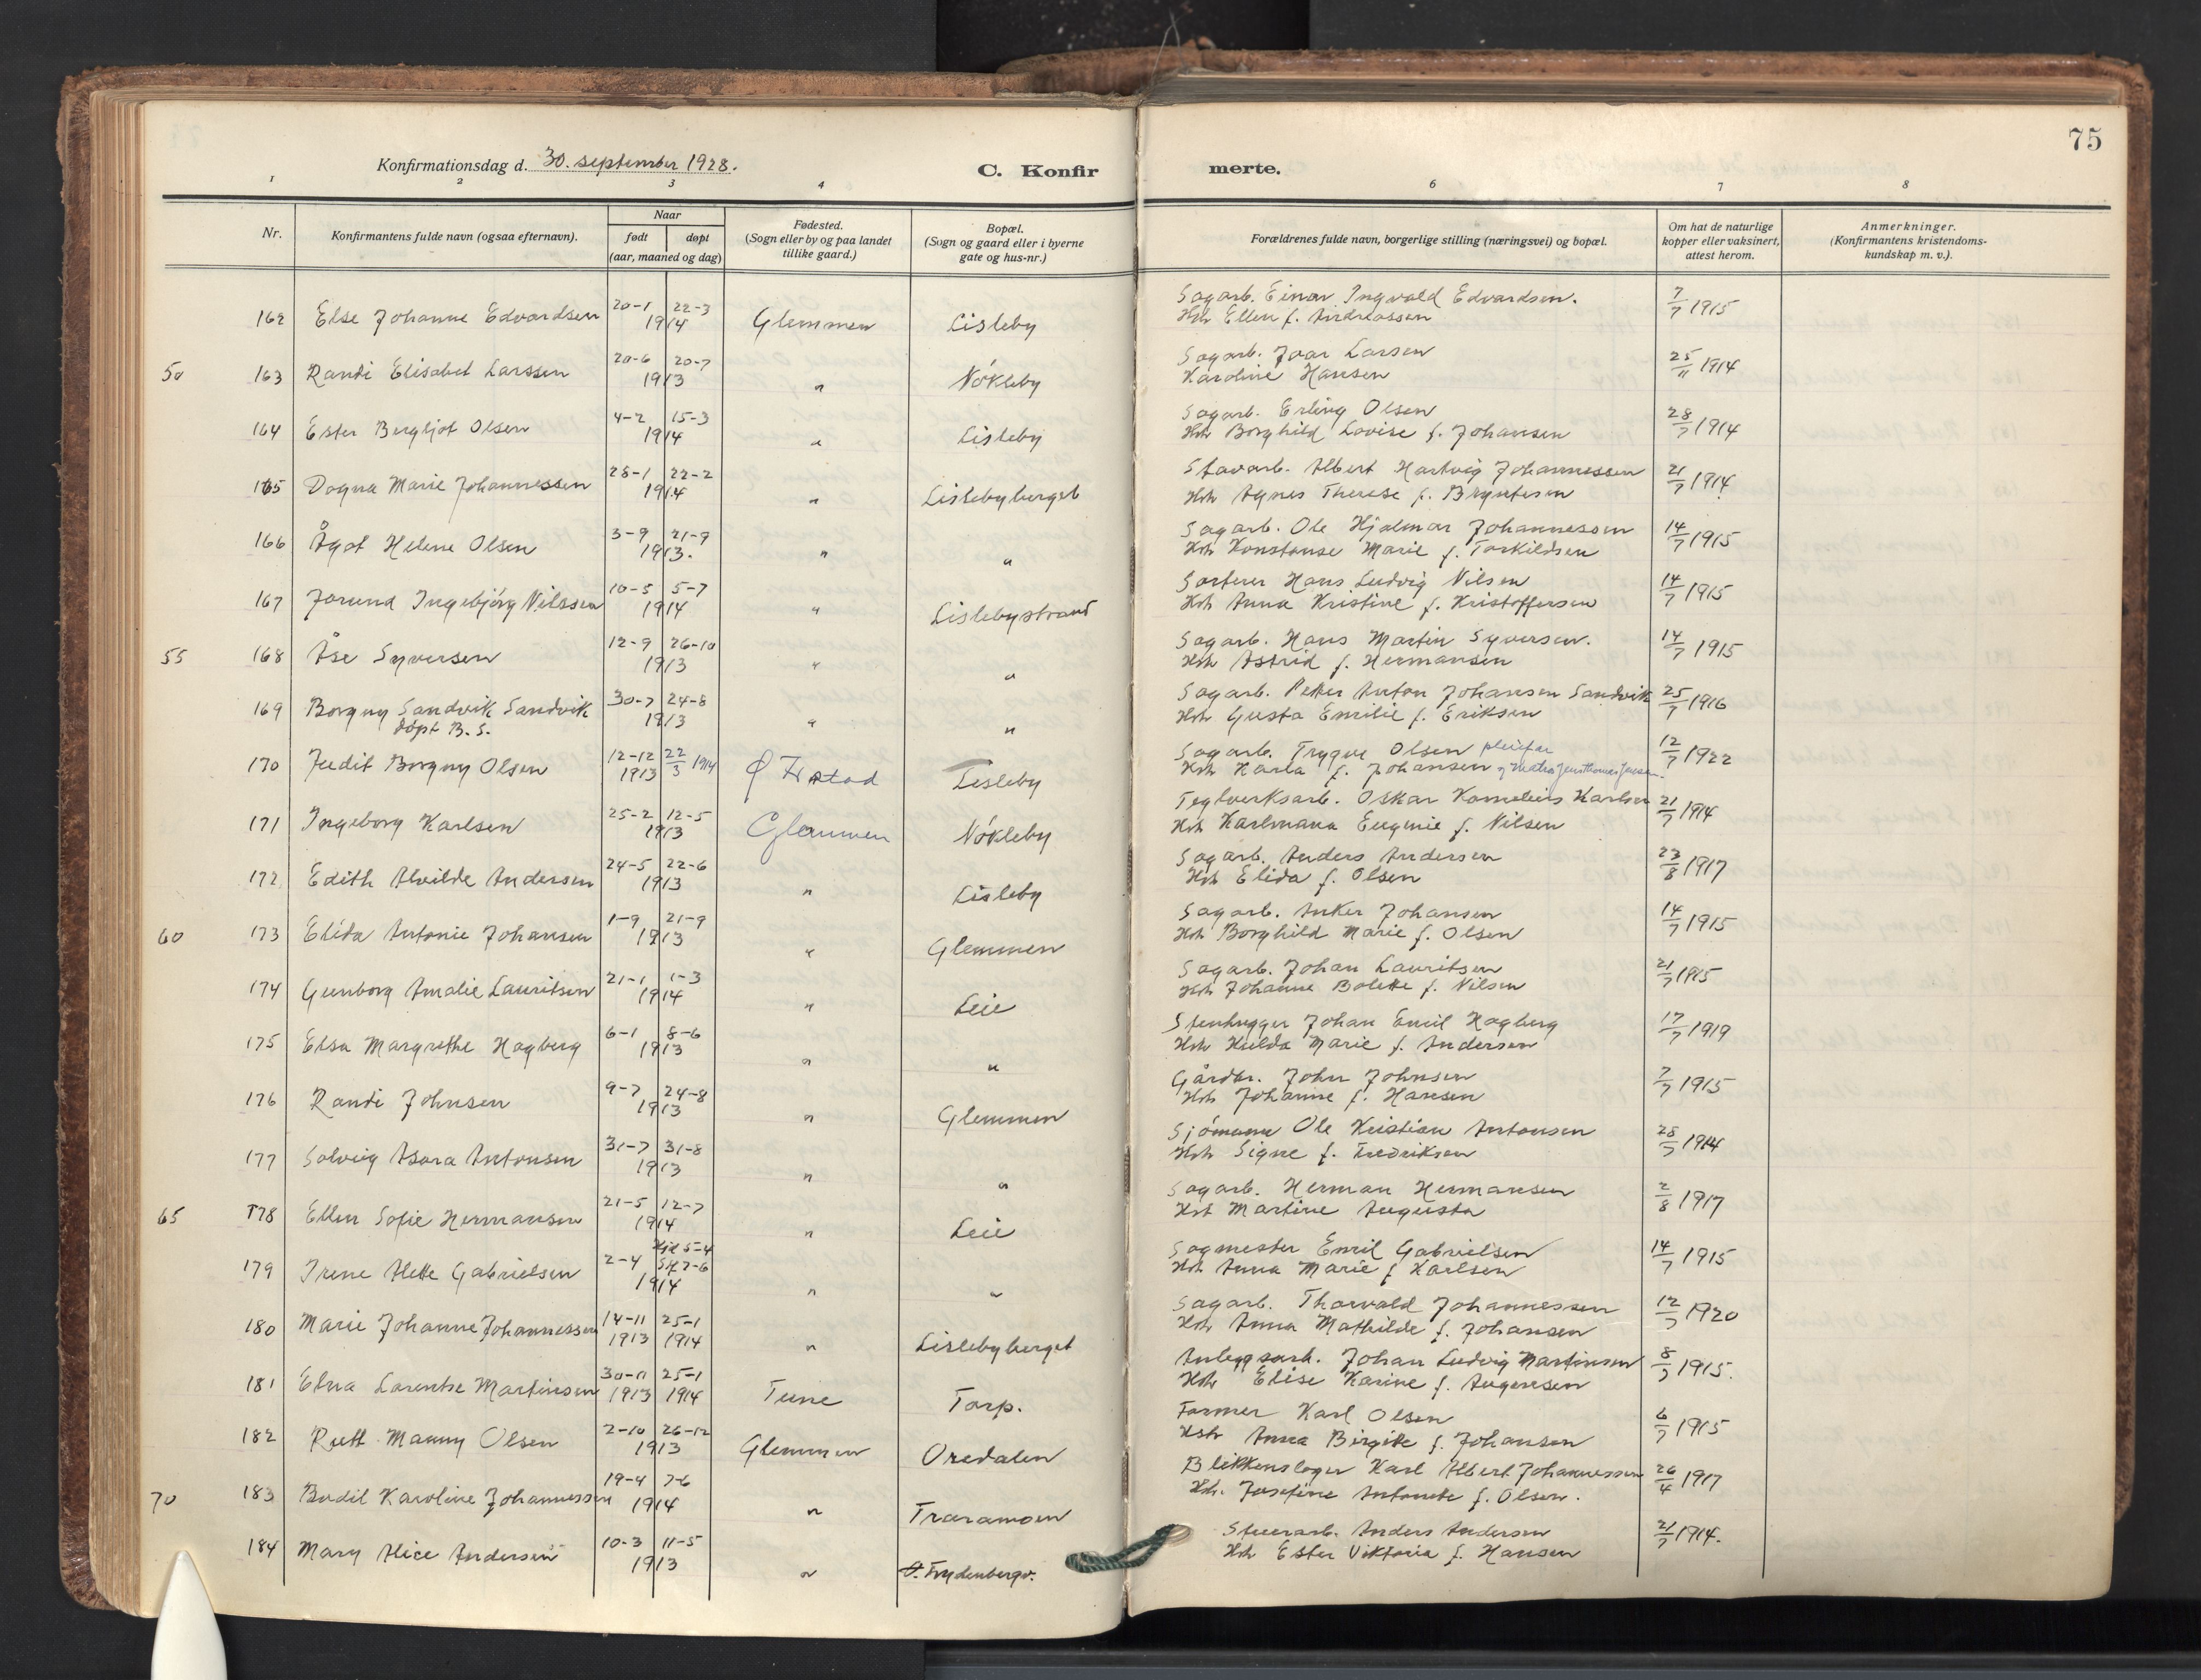 75
Konfirmationsdag d. 30. september 1928.
C. Konfirmerte.
1 2 3 4 6 7 8
Nr.
Konfirmantens fulde navn (ogsaa efternavn).
Naar
født døpt
(aar, maaned og dag)
Fødested.
(Sogn eller by og paa landet
tillike gaard.)
Bopæl.
(Sogn og gaard eller i byerne
gate og hus-nr.)
Forældrenes fulde navn, borgerlige stilling (næringsvei) og bopæl.
Om hat de naturlige
kopper eller vaksinert,
attest herom.
Anmerkninger.
(Konfirmantens kristendoms-
kundskap m. v.).
162 Else Johanne Edvardsen 20-1 22-3 1914 Glemmen Lisleby
Sagarb. Einar Ingvald Edvardsen. 7/7 1915
Hstr Ellen f. Andreassen
50 163 Randi Elisabet Larssen 20-6 20-7 1913 " Nøkleby
Sagarb. Ivar Larsen 25/11 1914
Karoline Hansen
164 Ester Bergljot Olsen 4-2 15-3 1914 " Lisleby
Sagarb. Erling Olsen 28/7 1914
Hstr Borghild Lovise f. Johansen
165 Dagna Marie Johannessen 28-1 22-2 1914 " Lislebyberget
Stavarb. Albert Hartvig Johannessen 21/7 1914
Hstr Agnes Therese f. Bryntesen
166 Ågot Helene Olsen 3-9 21-9 1913. " "
Sagarb. Ole Hjalmar Johannessen 14/7 1915
Hstr Konstanse Marie f. Torkildsen
167 Jorund Ingebjørg Nilssen 10-5 5-7 1914 " Lislebystrand
Sorterer Hans Ludvig Nilsen 14/7 1915
Hstr Anna Kristine f. Kristoffersen
55 168 Åse Syversen 12-9 26-10 1913 " "
Sagarb. Hans Martin Syversen. 14/7 1915
Hstr Astrid f. Hermansen
169 Borgny Sandvik Sandvik 30-7 24-8 1913 " "
døpt B. S.
Sagarb. Petter Anton Johansen Sandvik 25/7 1916
Hstr Gusta Emilie f. Eriksen
170 Judit Borgny Olsen 12-12 1913 22/3 1914 Lisleby
Sagarb. Trygve Olsen 12/7 1922
Hstr Karla f. Johansen
171 Ingeborg Karlsen 25-2 12-5 1913 Glemmen Nøkleby
Teglverksarb. Oskar Kornelius Karlsen 21/7 1914
Hstr Karlmana Eugenie f. Nilsen
172 Edith Alvilde Andersen 24-5 22-6 1913 " Lisleby
Sagarb. Anders Andersen 23/8 1917
Hstr Elida f. Olsen
60 173 Elida Antonie Johansen 1-9 21-9 1913 " Glemmen
Sagarb. Anker Johansen 14/7 1915
Hstr Borghild Marie f. Olsen
174 Gunborg Amalie Lauritsen 21-1 1-3 1914 " Leie
Sagarb. Johan Lauritsen 21/7 1915
Hstr Johanne Bolette f. Nilsen
175 Elsa Margrethe Hagberg 6-1 8-6 1913 " "
Stenhugger Johan Emil Hagberg 17/7 1919
Hstr Hulda Marie f. Andersen
176 Randi Johnsen 9-7 24-8 1913 " Glemmen
Gårdbr. John Johnsen 7/7 1915
Hstr Johanne f. Hansen
177 Solveig Asora Antonsen 31-7 31-8 1913 " "
Sjømann Ole Kristian Antonsen 28/7 1914
Hstr Signe f. Fredriksen
65 178 Ellen Sofie Hermansen 21-5 12-7 1914 " Leie
Sagarb. Herman Hermansen 2/8 1917
Hstr Martine Augusta
179 Irene Alette Gabrielsen 2-4 Hjd 5-4 Stf 7-6 1914 " "
Sagmester Emil Gabrielsen 14/7 1915
Hstr Anna Marie f Karlsen
180 Marie Johanne Johannessen 14-11 1913 25-1 1914 " Lislebyberget
Sagarb. Thorvald Johannessen 12/7 1920
Hstr Anna Mathilde f. Johansen
181 Elna Larentse Martinsen 30-11 1913 25-1 1914 Tune Torp.
Anleggsarb. Johan Ludvig Martinsen 8/7 1915.
Hstr Elise Karine f. Augensen
182 Ruth Manny Olsen 2-10 26-12 1913 Glemmen Oredalen
Former Karl Olsen 6/7 1915
Hstr Anna Birgitte f. Johansen
70 183 Bodil Karoline Johannessen 19-4 7-6 1914 " Traramoen
Blikkenslager Karl Albert Johannessen 26/4 1917
Hstr. Josefine Antonette f. Olsen.
184 Mary Alice Andersen 10-3 11-5 1913 " Frydenbergv.
Stuerarb. Anders Andersen 21/7 1914.
Hstr Ester Viktoria f. Hansen